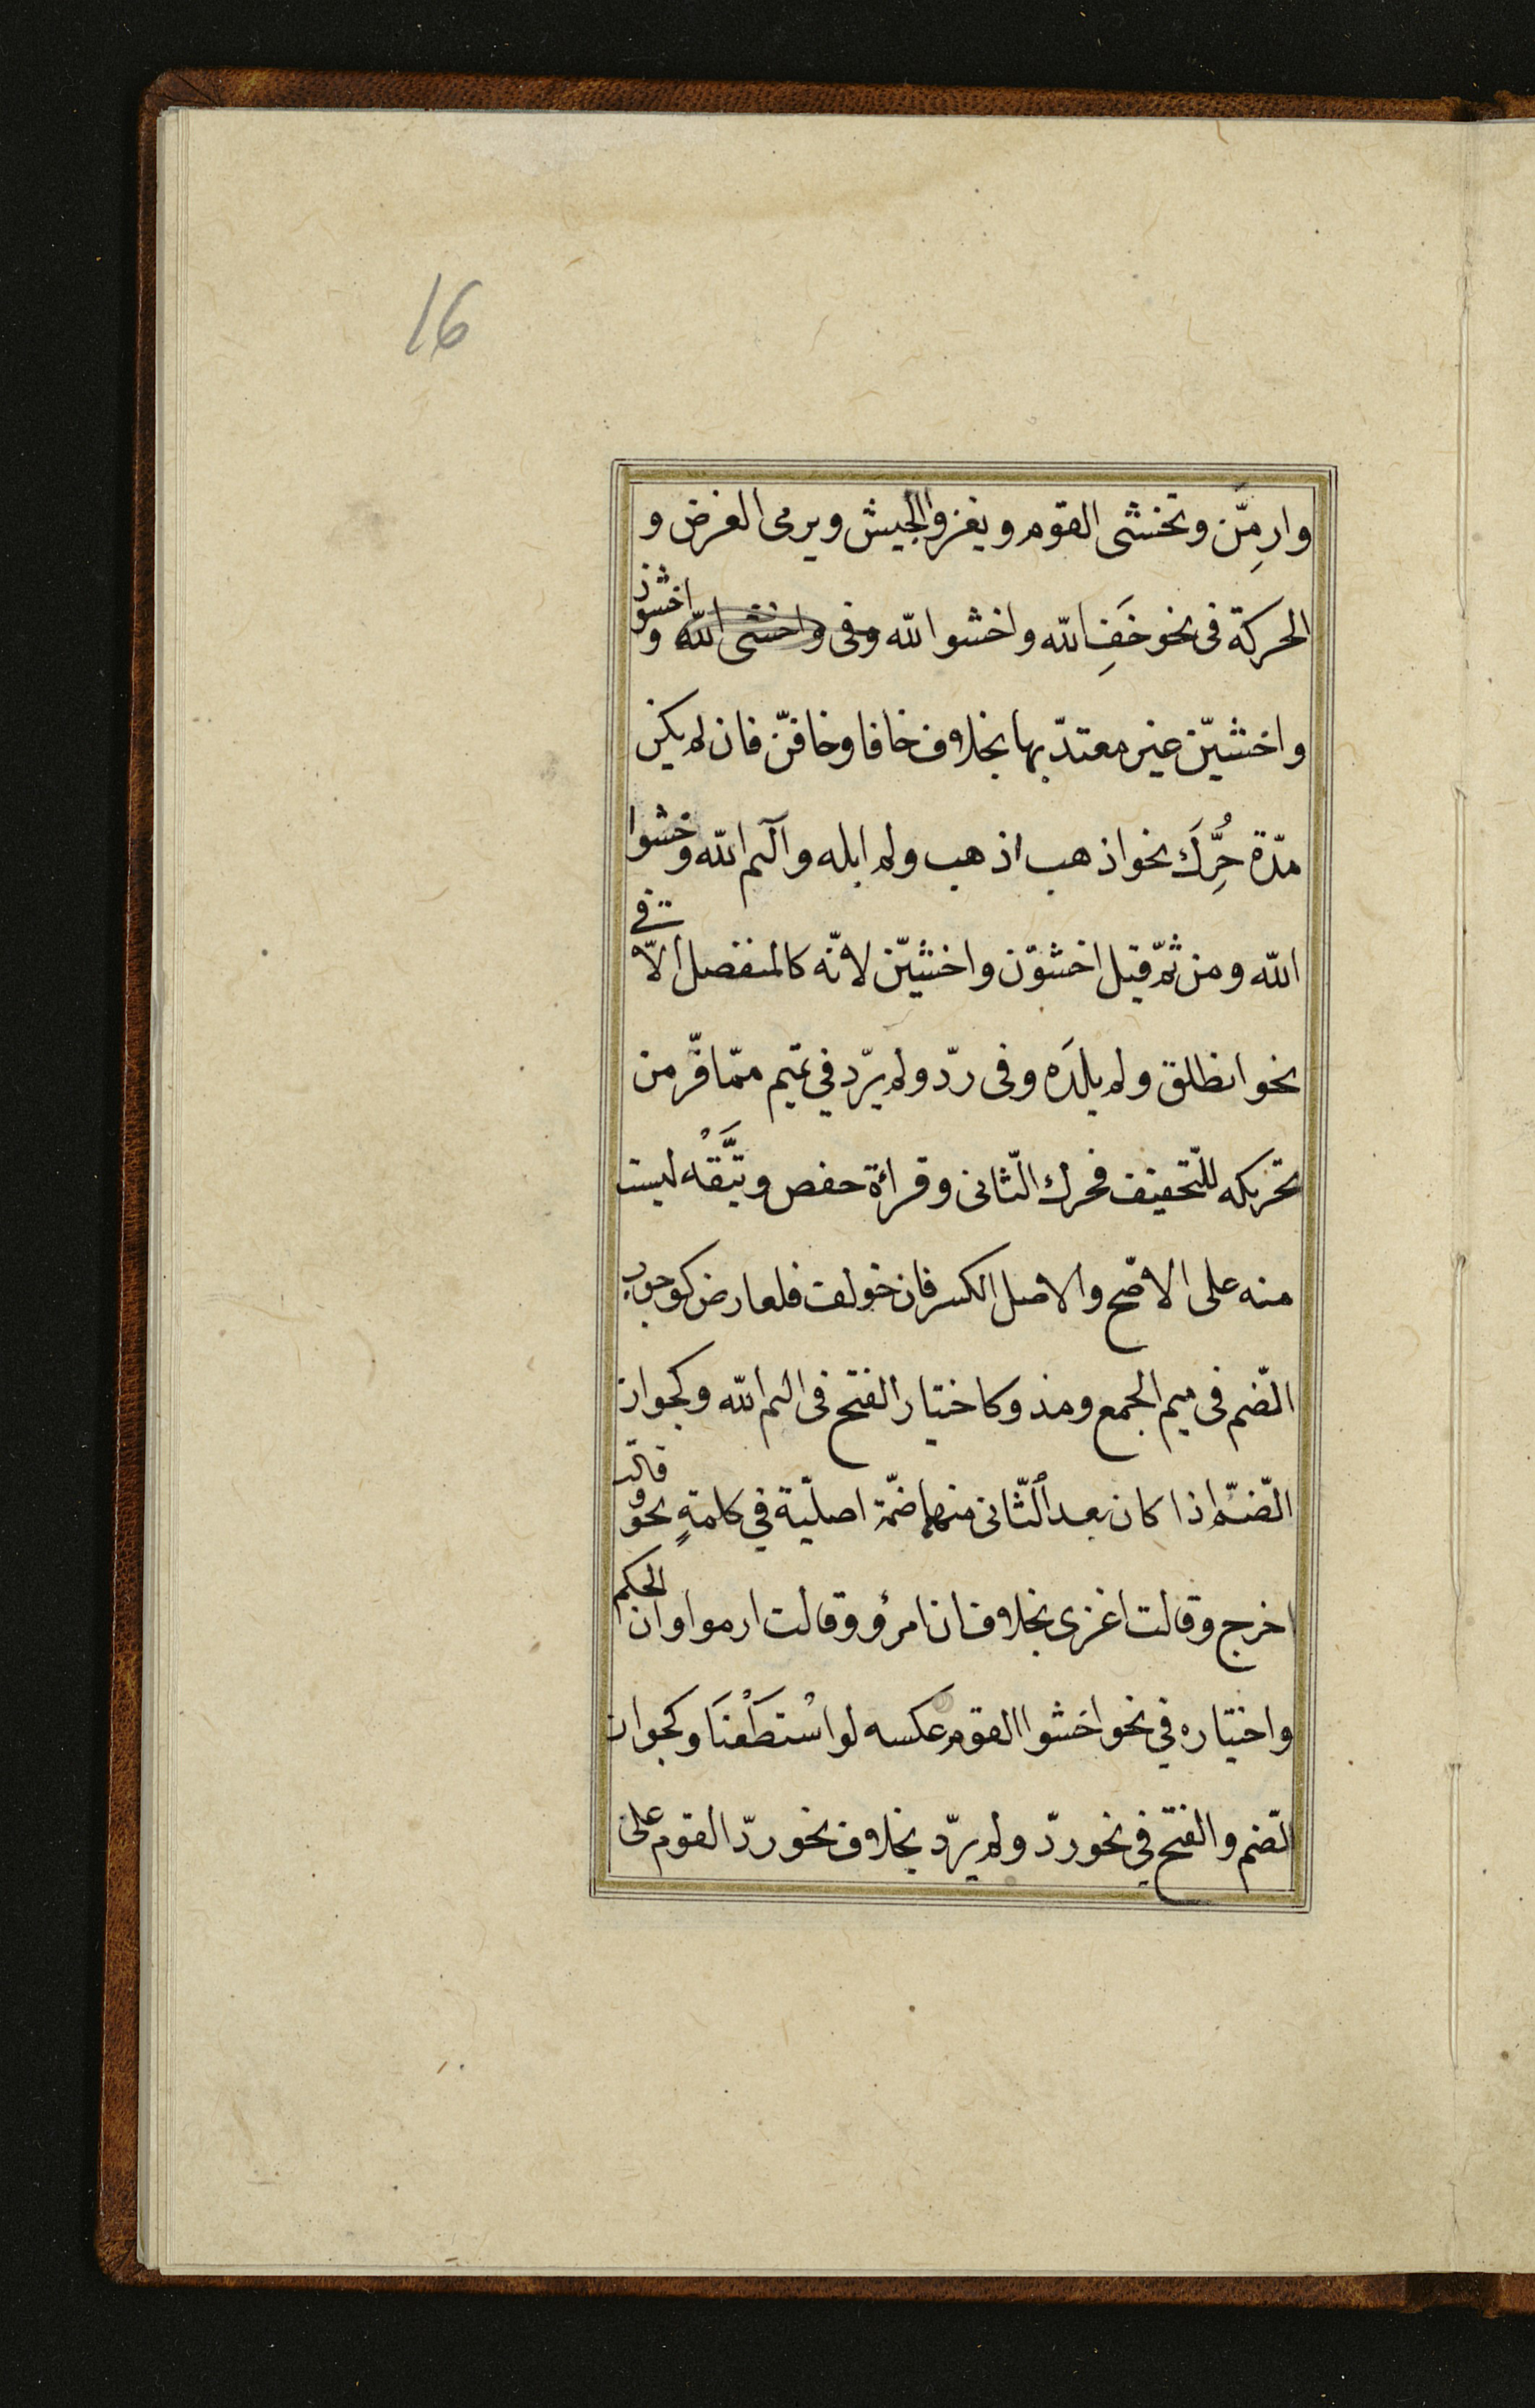 16
وارمِّن وتخشى القوم ويغزوا الجيش ويرمى الغرض و
الحركة فى نحو خَفِ الله واخشوا الله وفى واخشى الله و اخشون
واخشيّن غير معتدّ بها بخلاف خافا وخافنّ فان لم يكن
مدّة حُرِّكَ نحو اذهب اذهب ولم ابله وآلم الله واخشوا
الله ومن ثمّ قيل اخشوّن واخشيّن لانّه كالمنفصل الّا فى
نحو انطلق ولم يلدَه وفى ردّ ولم يردّ في تميم ممّا فرّ من
تحريكه للتّخفيف فحرك الثّانى وقرائة حفص ويتَّقْه ليست
منه على الاصّح والاصل الكسر فان خولف فلعارض كوجوب
الضّم فى ميم الجمع ومذ وكاختيار الفتح فى الم الله وكجواز
الضّم اذا كان بعد الثّانى منهما ضمّة اصليّة في كلمةٍ نحو وقالت
اخرج وقالت اغزى بخلاف ان امرؤ وقالت ارموا وان الحكم
واختياره في نحو اخشوا القوم عكسه لو اسْتَطَعْنَا وكجواز
الضّم والفتح في نحو ردّ ولم يردّ بخلاف نحو ردّ القوم على